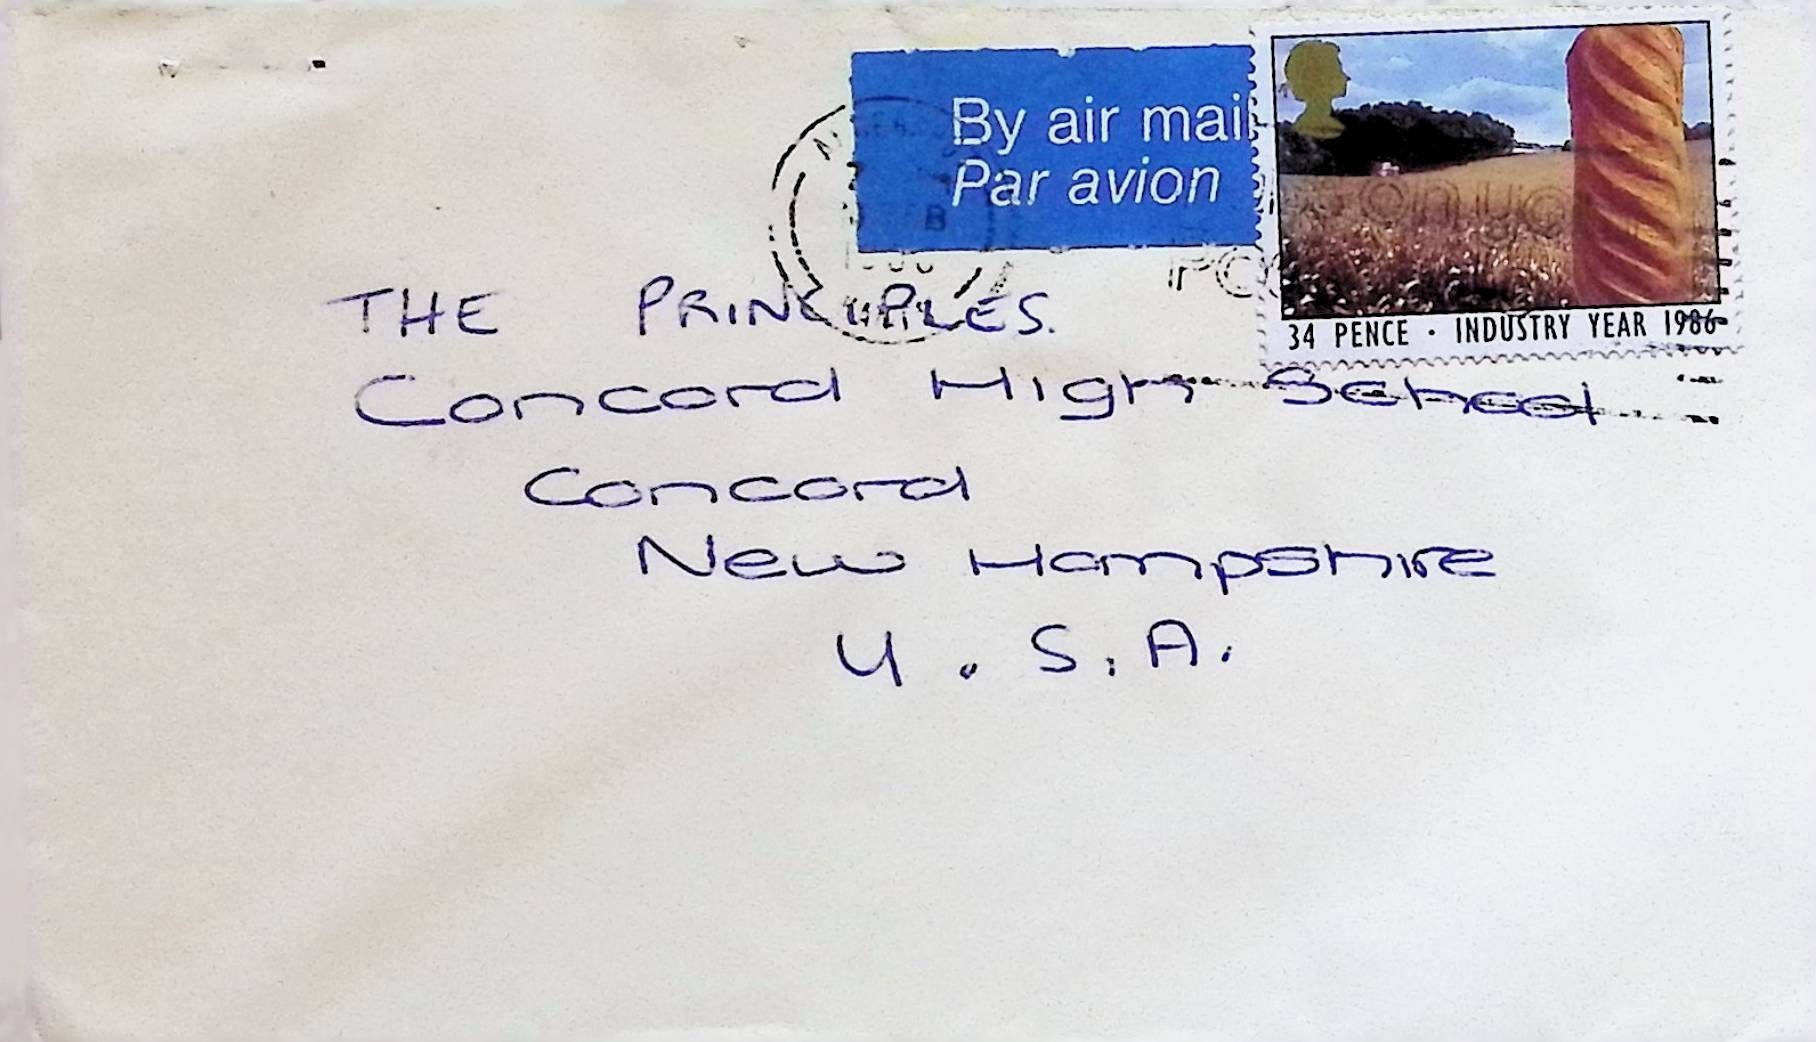 By air mail
Par avion
34 PENCE · INDUSTRY YEAR 1986
THE PRINCIPLES.
Concord High School
Concord
New Hampshire
U.S.A.